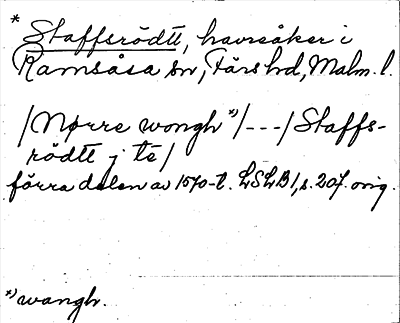 * Staffsrödtt, havreåker i
Ramsåsa sn, Färs hd, Malm. l.
/Nørre wongh *)/---/Staffs-
rödtt j te/
förra delen av 1570-t. LSLB1, s. 207. orig.
*) wangh.